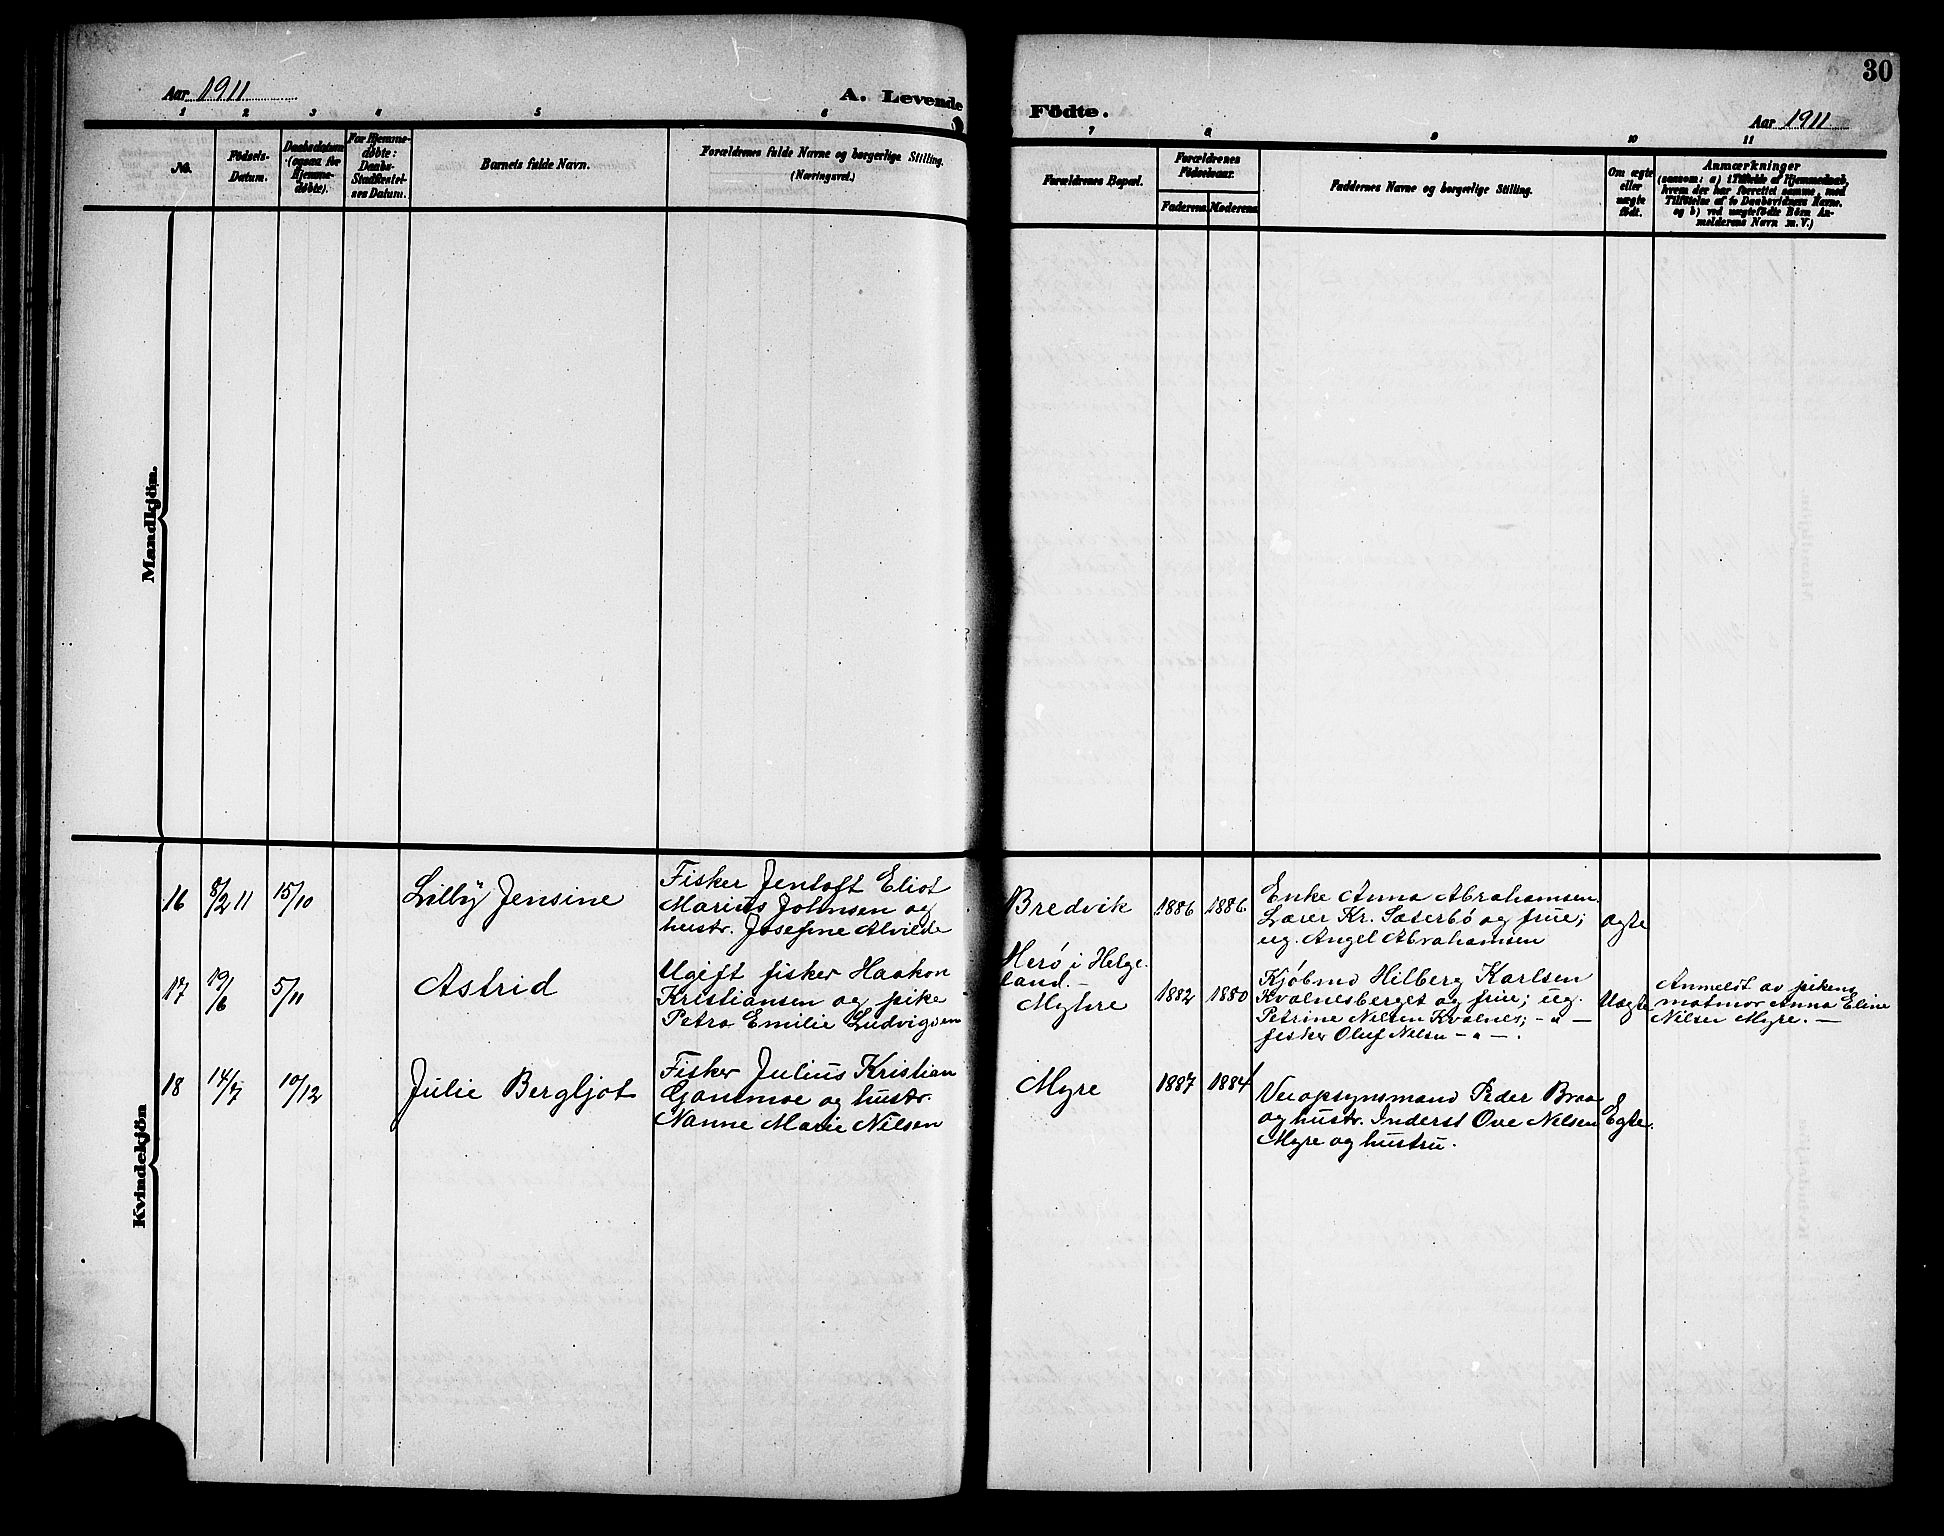 30
Aar 1911
A. Levende
Födte.
Aar 1911
1 2 3 4 5 6
7 8 9 10 11
No.
Födsels-
Datum.
Daabsdatum
(ogsaa for
Hjemme-
døbte).
For Hjemme-
døbte:
Daabs-
Stadfæstel-
ses Datum.
Barnets fulde Navn.
Forældrenes fulde Navne og borgerlige Stilling.
(Næringsvei.)
Forældrenes Bopæl.
Forældrenes
Födselsaar.
Faderens.
Moderens.
Faddernes Navne og borgerlige Stilling.
Om ægte
eller
uægte
født.
Anmærkninger
(saasom: a) i Tilfælde af Hjemmedaab,
hvem der har forrettet samme, med
Tilföielse af to Daabsvidners Navne.
og b) ved uægtefödte Börn An-
melderens Navn m. V.)
Mandkjön.
Kvindekjön
16
8/2 11
15/10
Lilly Jensine
Fisker Jentoft Eliot
Marius Johnsen og
hustr. Josefine Alvilde
Bredvik
1886
1886.
Enke Anna Abrahamsen.
Lærer Kr. Sæterbö og frue;
ug. Angel Abrahamsen
ægte
17
19/6
5/11
Astrid
Ugift fisker Haakon
Kristiansen og pike
Petra Emilie Ludvigsen
Herø i Helge-
land. -
Myhre
1882
1880
Kjøbmd Hilberg Karlsen
Kvalnesberget og frue; ug.
Petrine Nilsen Kvalnes; - " -
fisker Oluf Nilsen - " - .
Uægte
Anmeldt av pikens
matmor Anna Eline
Nilsen Myre. -
18
14/7
10/12
Julie Bergljot
Fisker Julius Kristian
Gammoe og hustr.
Nanne Marie Nilsen
Myre
1887
1884
Veiopsynsmand Peder Braa
og hustr. Inderst Ove Nilsen
Myre og hustru.
Egte.